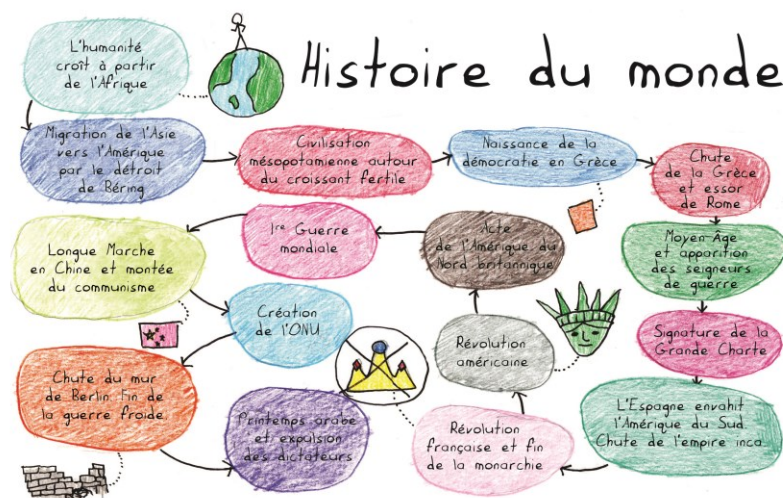 Histoire du monde
L'humanité
croît à partir
de l'Afrique
Migration de l'Asie
vers l'Amérique
par le détroit
de Béring
Civilisation
mésopotamienne autour
du croissant fertile
Naissance de la
démocratie en Grèce
Chute
de la Grèce
et essor
de Rome
Moyen-Âge
et apparition
des seigneurs
de guerre
Signature de la
Grande Charte
L'Espagne envahit
l'Amérique du Sud
Chute de l'empire inca
Révolution
française et fin
de la monarchie
Révolution
américaine
Acte
de l'Amérique du
Nord britannique
1re Guerre
mondiale
Longue Marche
en Chine et montée
du communisme
Création
de l'ONU
Chute du mur
de Berlin Fin de
la guerre froide
Printemps arabe
et expulsion
des dictateurs